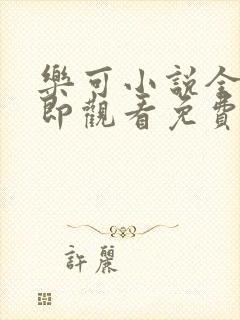 樂可小說全
即觀看免費
許麗